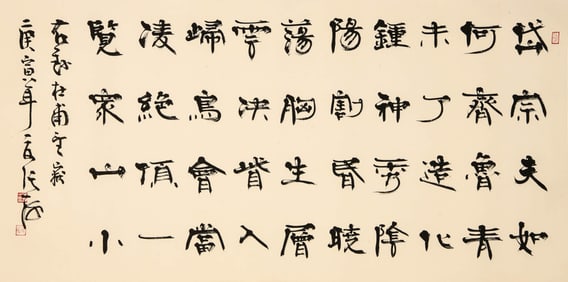 岱宗夫如
何齊魯青
未了造化
鍾神秀陰
陽割昏曉
蕩胸生層
雲決眥入
歸鳥會當
凌絕頂一
覽眾山小
右錄杜甫望嶽
庚寅年